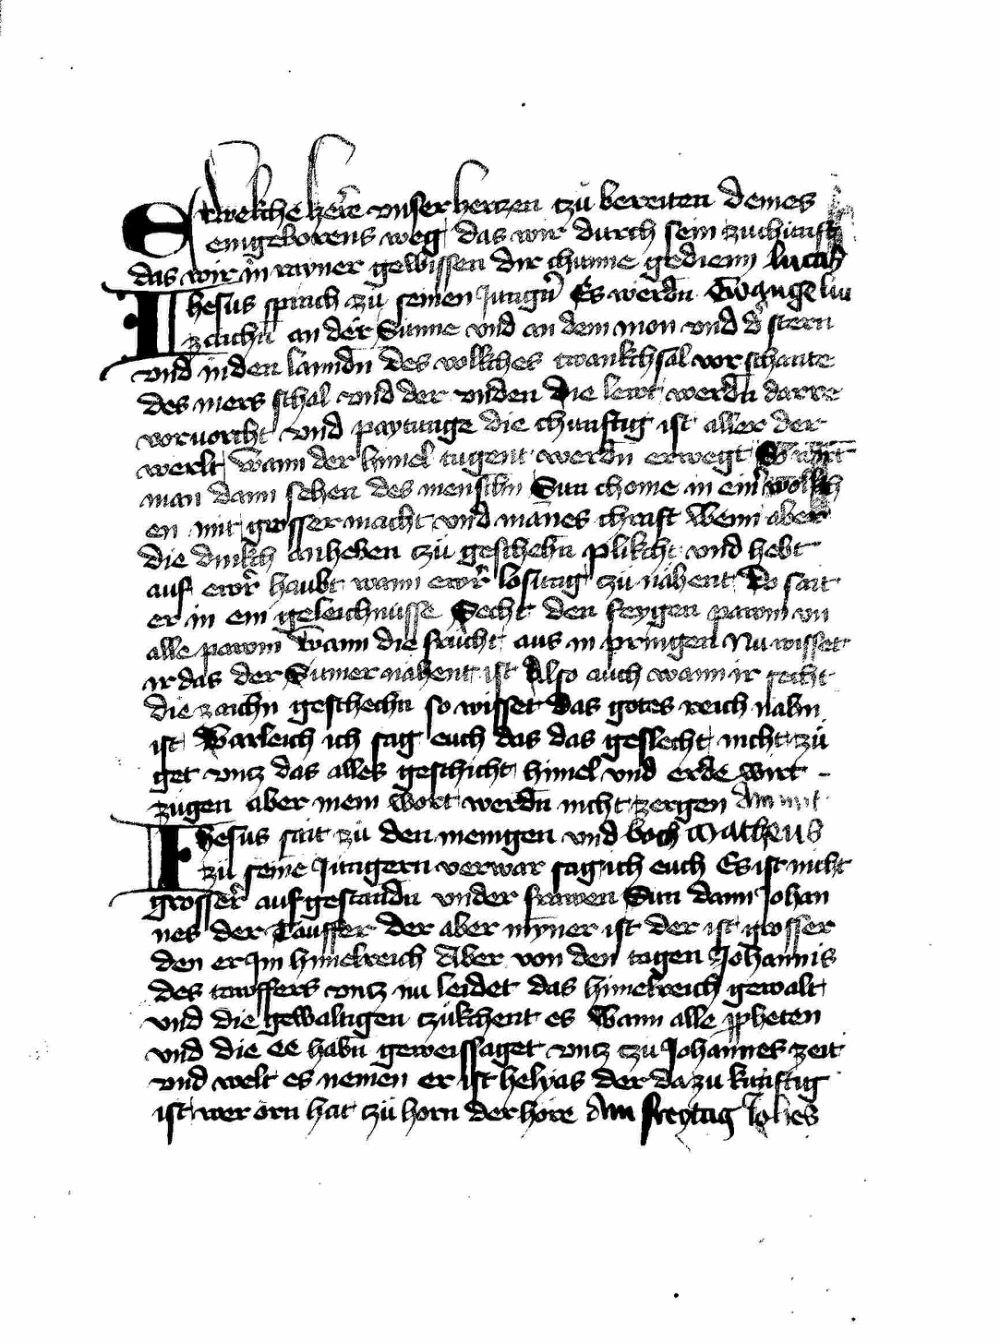 Erwelche herre unser herczen czů bereiten deines
eingeborens weg das wir durch sein zuchunft
das wir in rayner gewissen dir chunne gedienn lucas
Ihesus sprach zu seinen Jungern Es werdn Ewangeliu
zaichn an der Sunne vnd an dem mon vnd der stern
vnd in den lanndn des vollkches twankchsal vor schante
des mers schal vnd der vnden die lewt werdn darre
vor vorcht vnd paytunge die chunftig ist aller der
werlt wann der himel tugent werdn erwegt So wirt
man dann sehen des menschn Sun chome in einr wolkch
en mit grosser macht vnd manes chraft Wenn aber
die dinkch anheben czů geschehn plikcht vnd hebt
auf ewr haubt wann ewr losung zů nahent Do sait
er in ein geleichnüsse Secht den feygen pawm vn
alle pawm Wann die frucht aus in pringen Nu wisset
ir das der Sumer nahent ist Also auch wann ir secht
die zaichn geschechn so wisset das gotes reich nahn
ist Warleich ich sag euch das das geslecht nicht zů
get vncz das alles geschicht himel vnd erde wirt -
zůgen aber mein wort werdn nicht zergen Am mit
Ihesus sait zů den menigen vnd boch Matheus
zů seine Jungern verwar sag ich euch Es ist nicht
grosser auf gestandn vnder frawen Sun dann Johan
nes der Tauffer der aber mynner ist der ist grosser
den er Im himelreich Aber von den tagen Johannis
des tawffers vncz nu leidet das himelreich gewalt
vnd die gewaltigen czukchent es Wann alle ppheten
vnd die ee habn geweissaget vncz czu Johannes zeit
vnd welt es nemen er ist helyas der da zu künftig
ist wer orn hat zů horn der hore Am freytag Johes